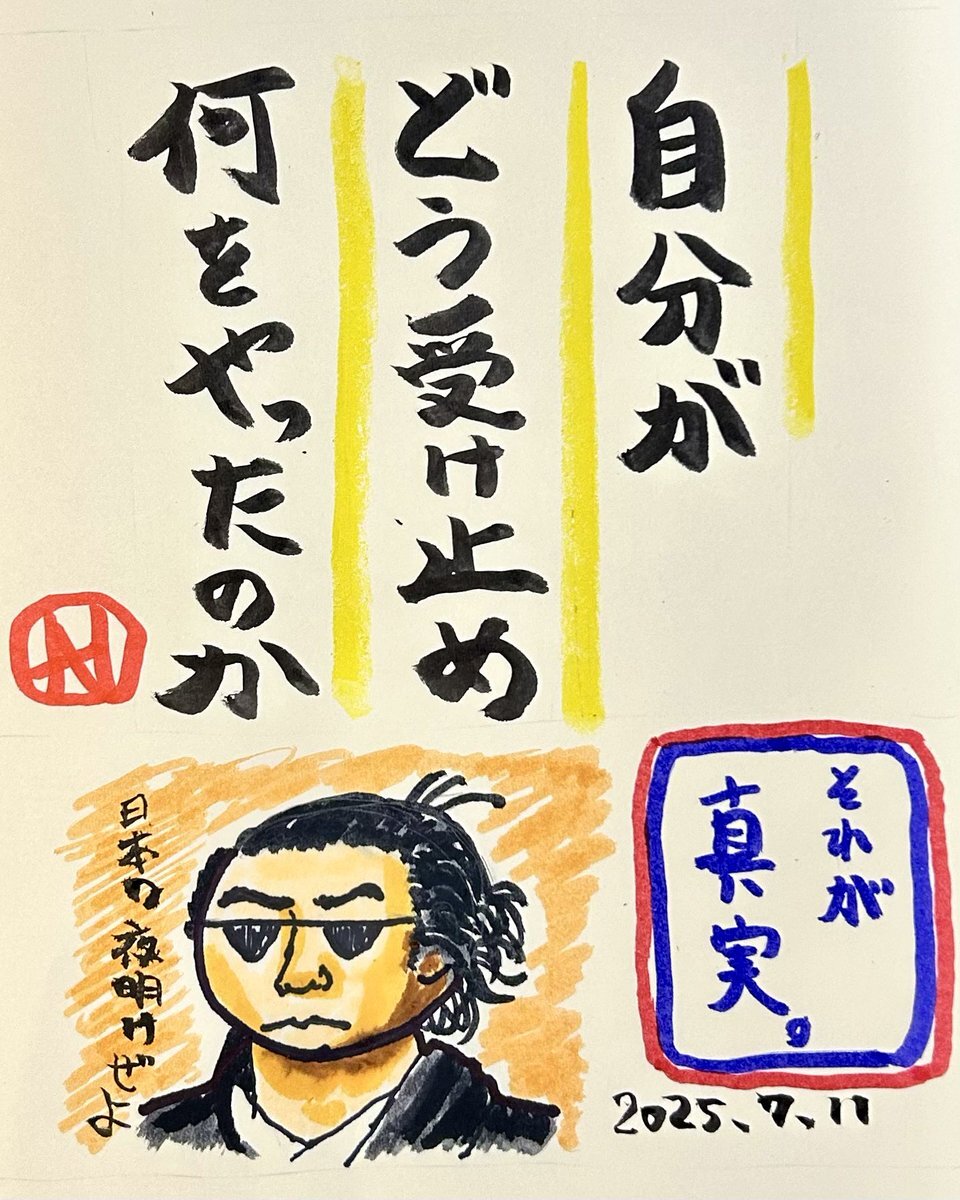 自分が
どう受け止め
何をやったのか
それが
真実。
2025.7.11
日本の夜明けぜよ